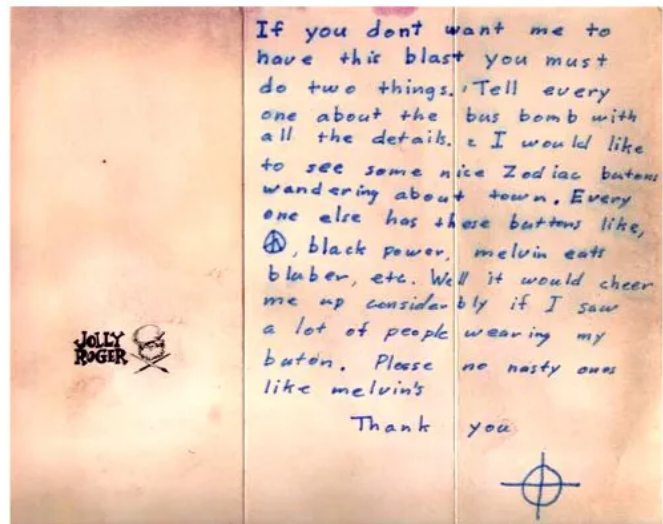 If you dont want me to
have this blast you must
do two things. Tell every
one about the bus bomb with
all the details. I would like
to see some nice Zodiac butons
wandering about town. Every
one else has these buttons like,
☮, black power, melvin eats
bluber, etc. Well it would cheer
me up considerbly if I saw
a lot of people wearing my
buton. Please no nasty ones
like melvin's
Thank you
JOLLY
ROGER